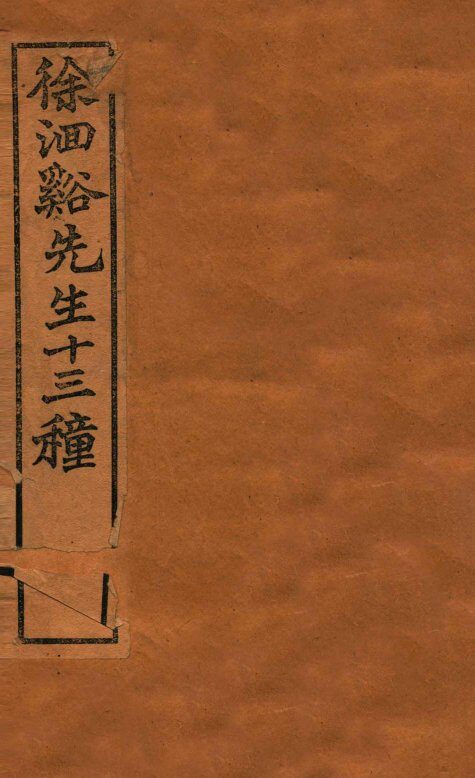 徐洄谿先生十三種